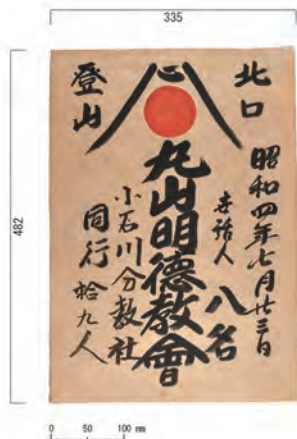 335
482
北口
登山
昭和四年七月廿三日
世話人 八名
丸山明德教會
小石川分教社
同行 拾九人
0 50 100 mm